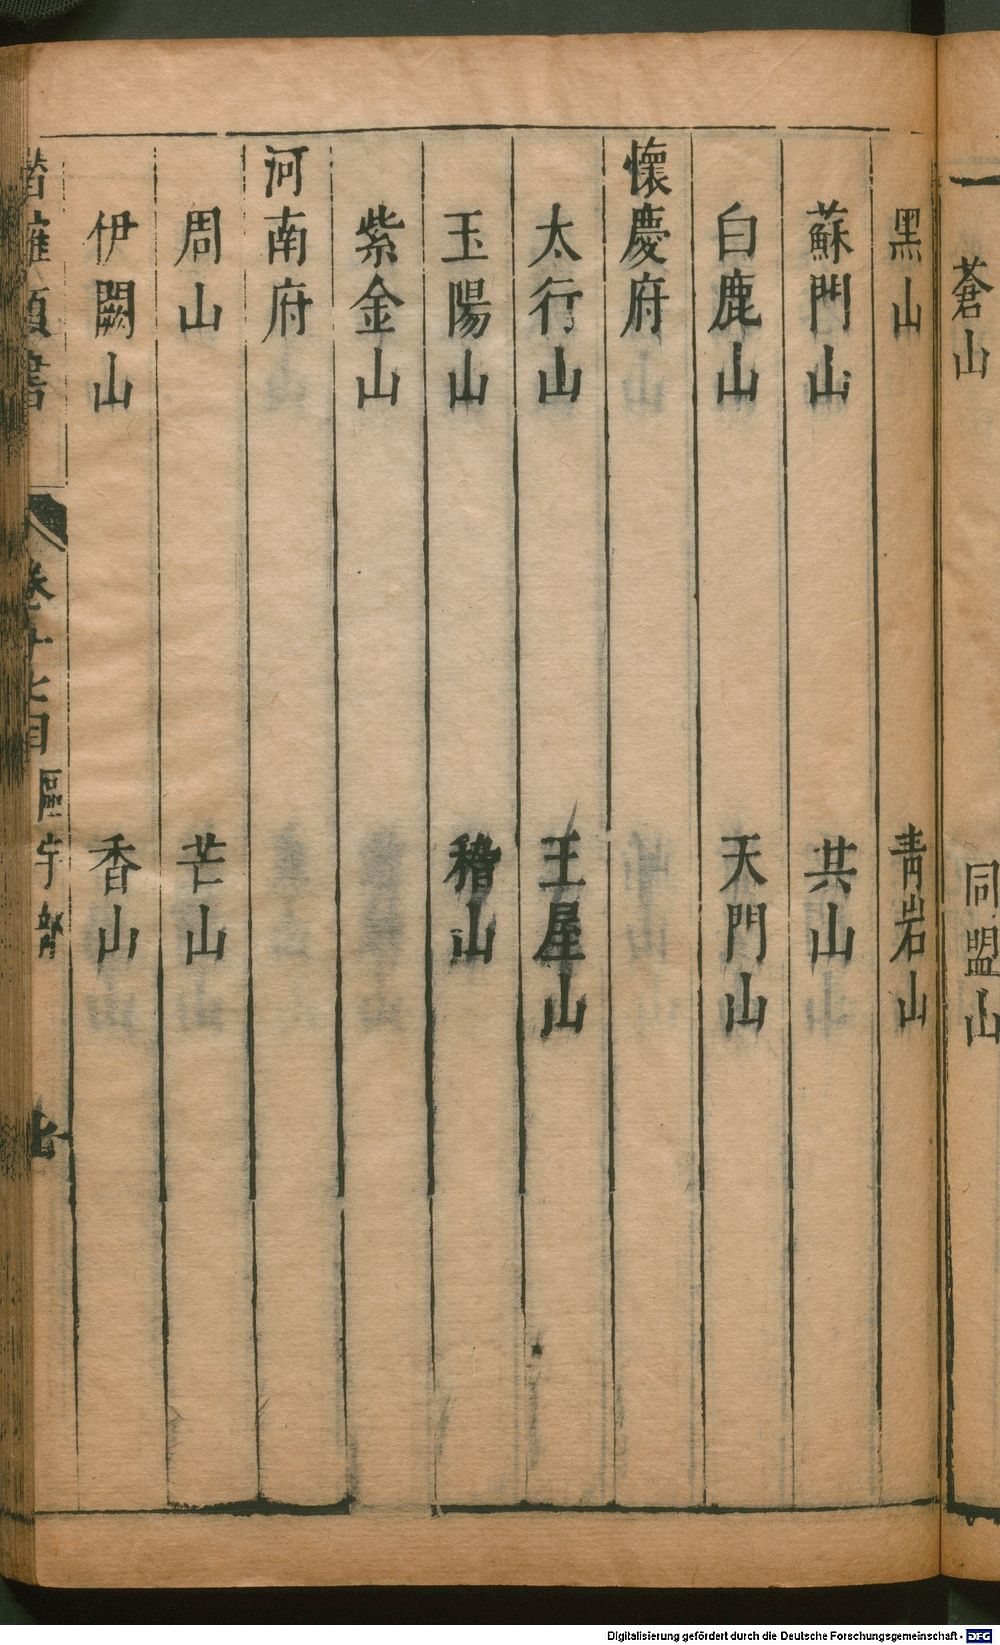 蒼山 同盟山
黑山 青岩山
蘇門山 共山
白鹿山 天門山
懷慶府
太行山 王屋山
玉陽山 稽山
紫金山
河南府
周山 芒山
伊闕山 香山
卷十七目 區宇部
Digitalisierung gefördert durch die Deutsche Forschungsgemeinschaft - DFG